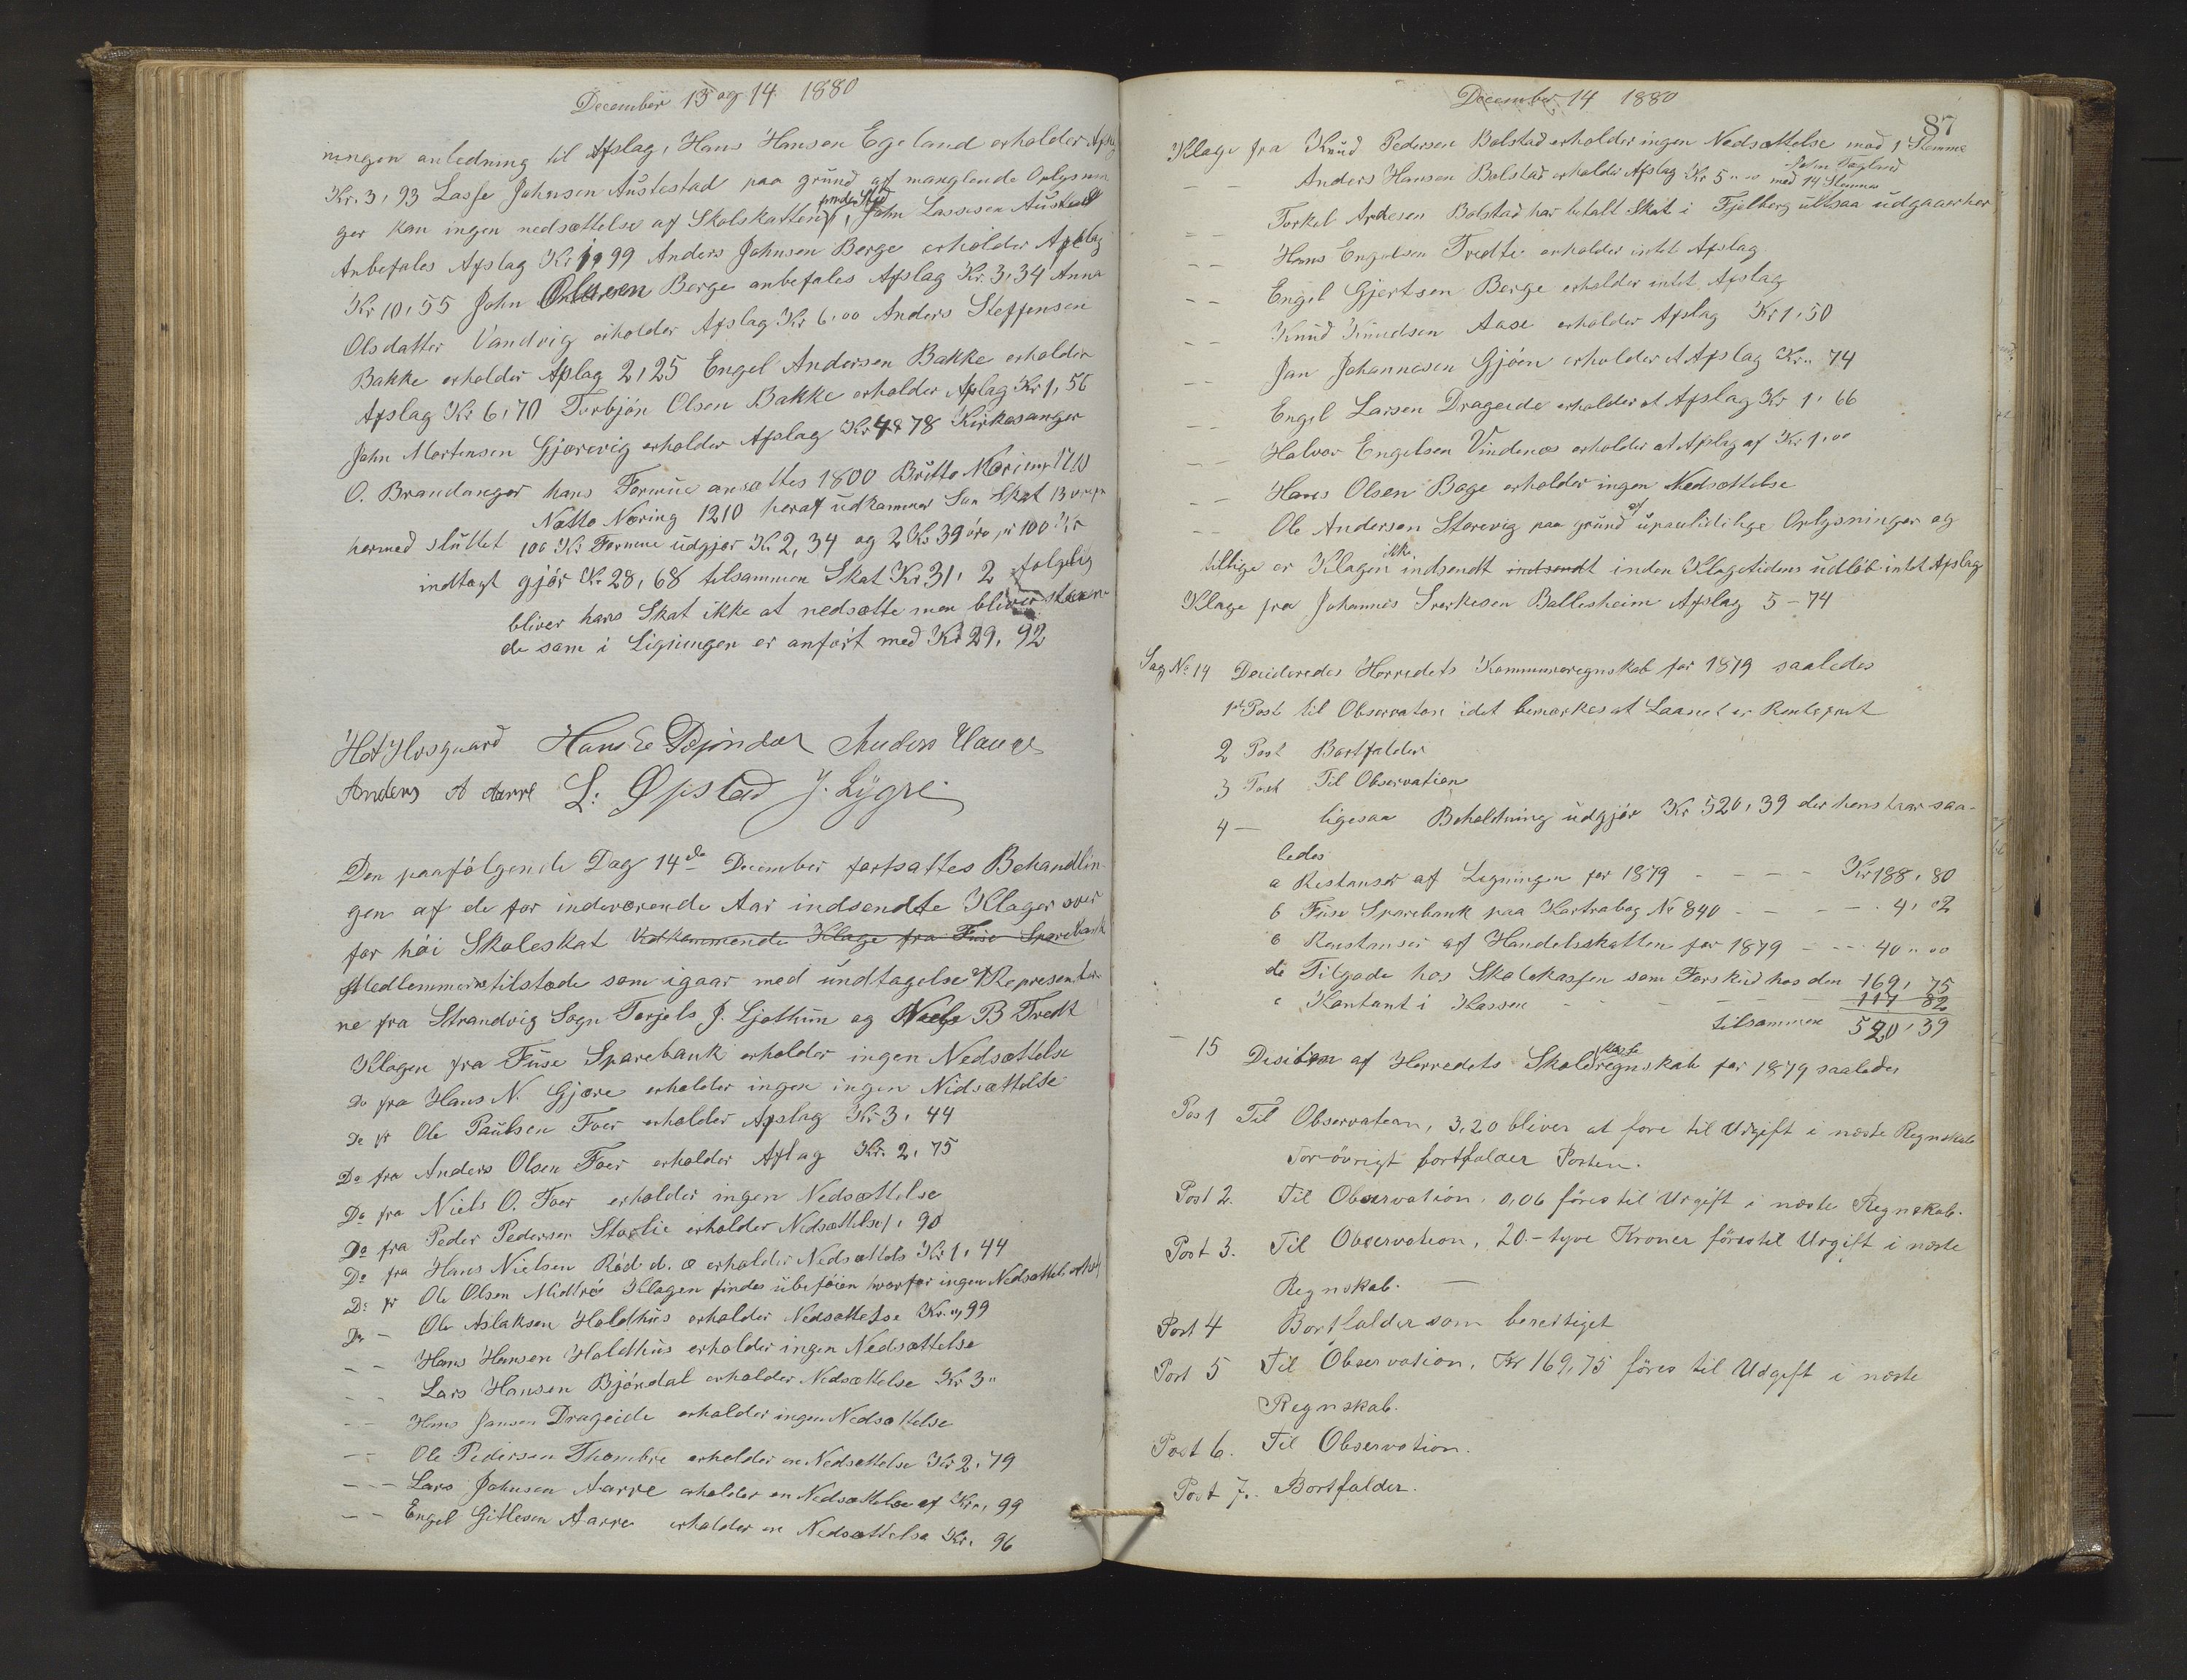 December 13 og 14 1880
ningen anledning til Afslag, Hans Hansen Egeland erholder Afslag
Kr. 3,93 Lasse Johnsen Austestad paa grund af manglende Oplysnin
ger kan ingen nedsættelse af Skolskatten finde Sted, John Lassesen Austestad
Anbefales Afslag Kr 1,99 Anders Johnsen Berge erholder Afslag
Kr 10,55 John Olsen Berge anbefales Afslag Kr. 3,34 Anna
Olsdatter Vandvig erholder Afslag Kr 6,00 Anders Steffensen
Bakke erholder Afslag 2,25 Engel Andersen Bakke erholder
Afslag Kr 6,70 Torbjön Olsen Bakke erholder Afslag Kr 1,56
John Mortensen Gjærevig erholder Afslag Kr 4,78 Kirkesanger
O. Brandanger hans Formue ansættes 1800 Brutto Næring 1710
Netto Næring 1210 heraf udkommer Son Skat 13 øre pr
hermed sluttet 100 Kr Formue udgjør Kr 2,34 og 2 Kr 39 öre pr 100 Kr
indtagt gjør Kr. 28,68 tilsammen Skat Kr 31, 2 følgelig
bliver hans Skat ikke at nedsætte men bliver staaen
de som i Ligningen er anført med Kr 29,92
Anders Hauge
Anders A Aarre L. Øpstad J. Lygre
Den paafølgende Dag 14de December fortsattes Behandlin
gen af de for indeværende Aar indsendte Klager over
for höi Skoleskat Vedkommende Klage fra Fuse Sparebank
Medlemmerne tilstede som igaar med undtagelse af Representer
ne fra Strandvig Sogn Torjels J. Ljothun og Niels B Tredt
Klagen fra Fuse Sparebank erholder ingen Nedsættelse
Do fra Hans N. Gjære erholder ingen ingen Nidsættelse
Do fr Ole Paulsen Foer erholder Afslag Kr 3,44
Do fra Anders Olsen Foer erholder Afslag Kr. 2,75
Do fra Niels O. Foer erholder ingen Nedsættelse
Do fra Peder Pedersen Storlie erholder Nedsættelse 1,90
Do fra Hans Nielsen Röd d. æ erholder Nedsættels Kr 1,44
Do fr Ole Olsen Midtrö Klagen findes ubeföiet hvorfor ingen Nedsættelse erhold
Do - Ole Aslaksen Holdhus erholder Nedsættelse Kr. ",99
- - Hans Hansen Holdhus erholder ingen Nedsættelse
- - Lars Hansen Bjørndal erholder Nedsættelse Kr 3"
- - Hans Jansen Drageide erholder ingen Nedsættelse
- - Ole Pedersen Thombre erholder en Nedsættelse Kr 2,79
- - Lars Johnsen Aarre erholder en Nedsættelse af Kr ",99
- - Engel Gitlesen Aarre erholder en Nedsættelse Kr. 96
December 14 1880
87
Klage fra Knud Pedersen Bolstad erholder ingen Nedsættelse mod 1 Stemme
John Tægland
- - Anders Hansen Bolstad erholder Afslag Kr 5 " 00 med 14 Stemmer
- - Torkel Bolstad har betalt Skat i Fjelberg altsaa udgaaer her
- - Hans Engelsen Tredte erholder intet Afslag
- - Engel Gjertsen Berge erholder intet Afslag
- - Knud Knudsen Aase erholder Afslag Kr 1,50
- - Jan Johannesen Gjøen erholder et Afslag Kr " 74
- - Engel Larsen Drageide erholder et Afslag Kr 1,66
- - Halvor Engelsen Vindenes erholder et Afslag af Kr 1,00
- - Hans Olsen Bage erholder ingen Nedsættelse
- - Ole Andersen Storevig paa grund af upaalidelige Oplysninger og
tillige er Klagen ikke indsendt indsendt inden Klagetidens udløb intet Afslag
Klage fra Johannes Sverkesen Ballesheim Afslag 5 - 74
Sag No 14 Desideredes Herredets Kommuneregnskab for 1879 saaledes
1ste Post til Observaton idet bemærkes at Laanet er Rentefrit
2 Post Bortfalder
3 Post Til Observation
4 — ligesaa Beholdning udgjør Kr 520,39 der henstaar saa-
ledes
a Restanser af Ligningen for 1879 - - - - Kr 188,80
b Fuse Sparebank paa Kontrabog No 840 - - - - 4,02
c Restanser af Handelsskatten for 1879 - - - 40 " 00
d Tilgode hos Skolekassen som Forskud hos den 169,75
e Kontant i Kassen - - - - - 117 82
tilsammen 520,39
- 15 Desition af Herredets Skolekasseregnskab for 1879 saaledes
Post 1 Til Observation, 3,20 bliver at føre til Udgift i næste Regnskab
Forøvrigt bortfalder Posten.
Post 2. Til Observation, 0,06 föres til Utgift i næste Regnskab.
Post 3. Til Observation, 20.- tyve Kroner föres til Utgift i næste
Regnskab. —
Post 4 Bortfalder som berettiget
Post 5 Til Observation, Kr 169,75 föres til Udgift i næste
Regnskab.
Post 6. Til Observation.
Post 7. Bortfalder.